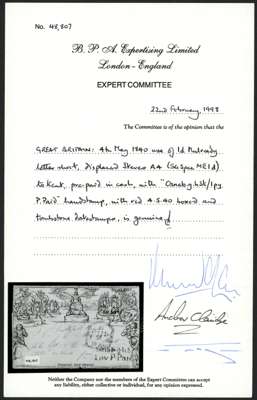 No. 48,807
B. P. A. Expertising Limited
London - England
EXPERT COMMITTEE
22nd February, 1998
The Committee is of the opinion that the
GREAT BRITAIN: 4th May 1840 use of 1d Mulready
letter sheet, displaced Stereo A4 (SG Spec ME1d)
to Kent, pre-paid in cash, with "
P. Paid" handstamp, with red 4.5.40 boxed and
tombstone datestamps, is genuine
Neither the Company nor the members of the Expert Committee can accept
any liability, either collective or individual, for any opinion expressed.